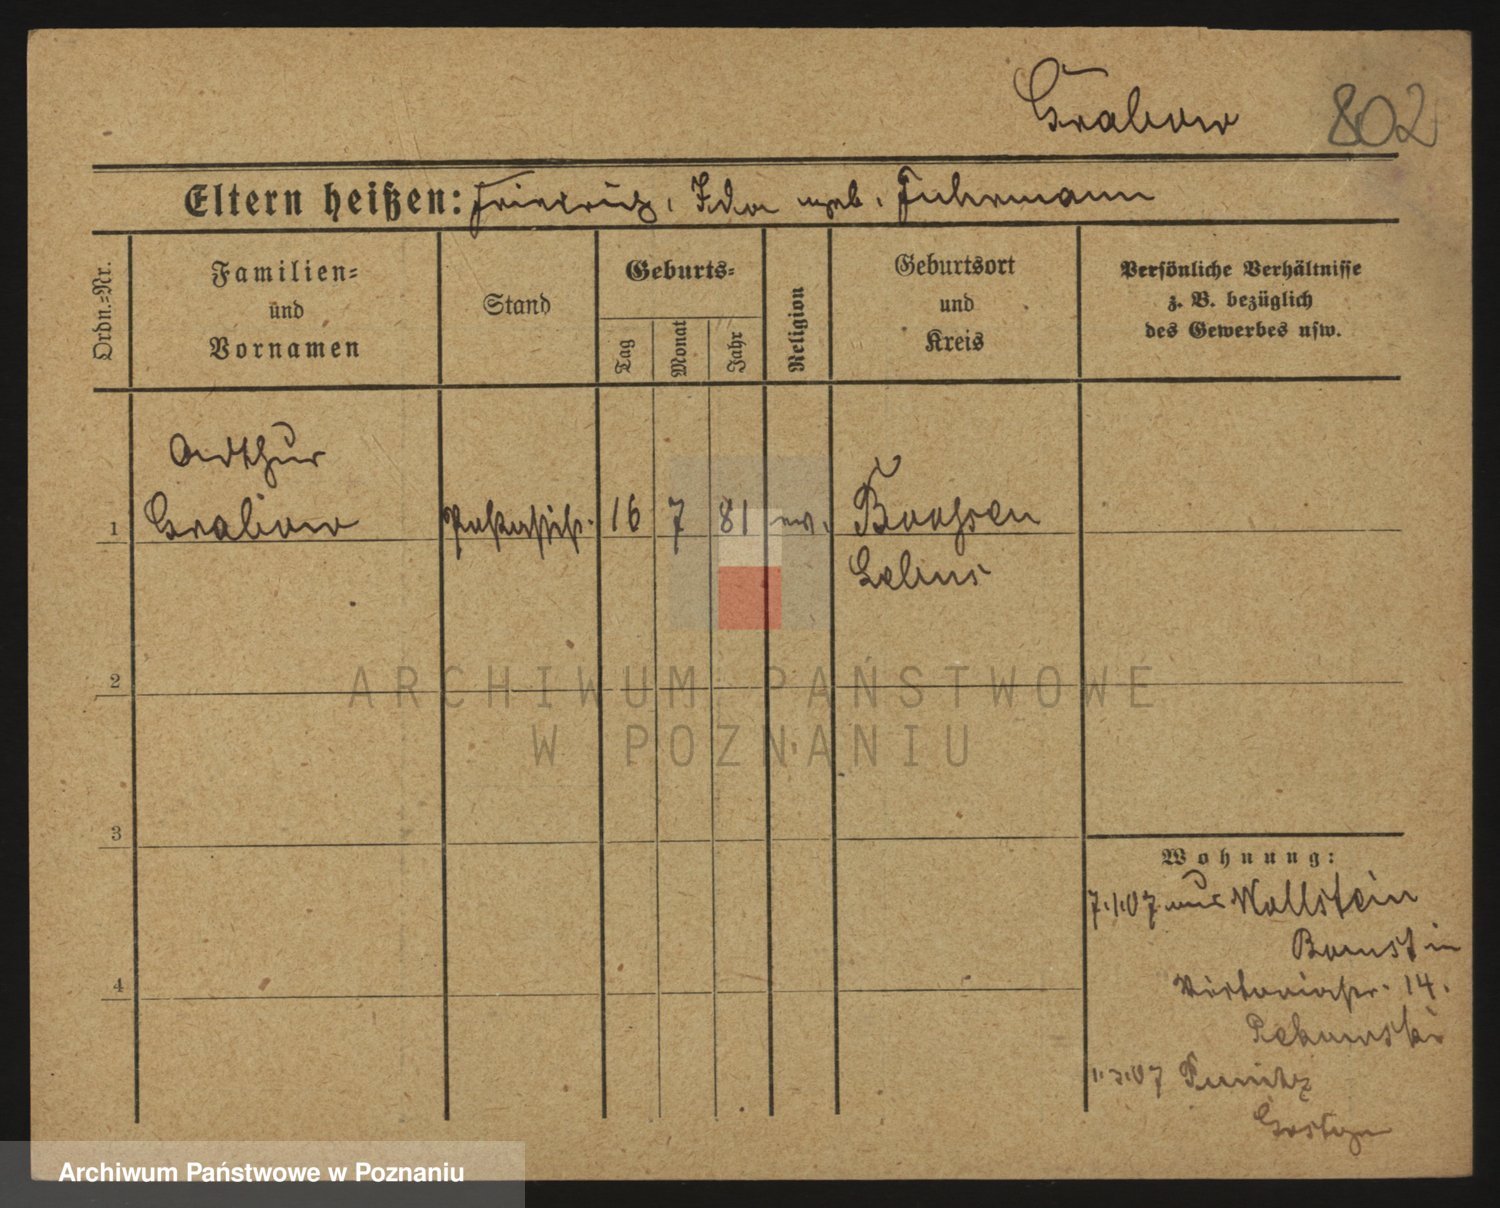 Grabow 802
Eltern heißen: Friedrich, Ida geb. Fuhrmann
Ordn.=Nr.
Familien=
und
Vornamen
Stand
Geburts=
Tag
Monat
Jahr
Religion
Geburtsort
und
Kreis
Persönliche Verhältnisse
z. B. bezüglich
des Gewerbes usw.
Arthur
1 Grabow 16 7 81 ev. Boossen
Lebus
2
3
4
Wohnung:
7.1.07 aus Wollstein
Bomst in
Viktoriastr. 14.
1.3.07 Punitz
Gostyn
ARCHIWUM PAŃSTWOWE
W POZNANIU
Archiwum Państwowe w Poznaniu